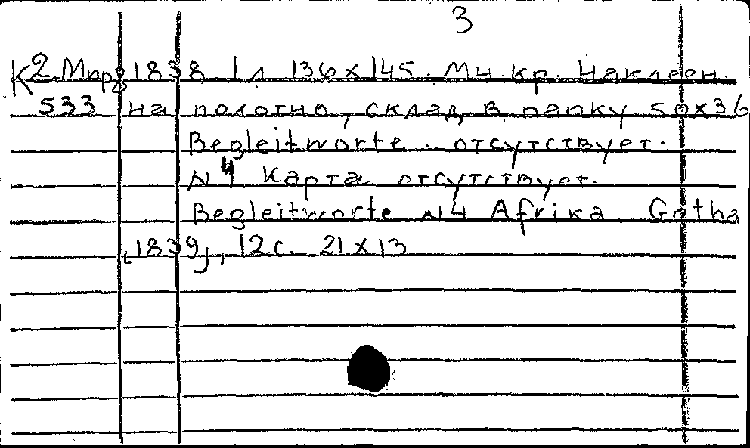 3
К2-Мир 1838 1 л. 136x145. Мн кр. Наклеен.
533 на полотно, склад. в папку 50x36
Begleitworte отсутствует.
N 4 Карта отсутствует.
Begleitworte N4 Afrika Gotha
[1839], 12 с. 21x13